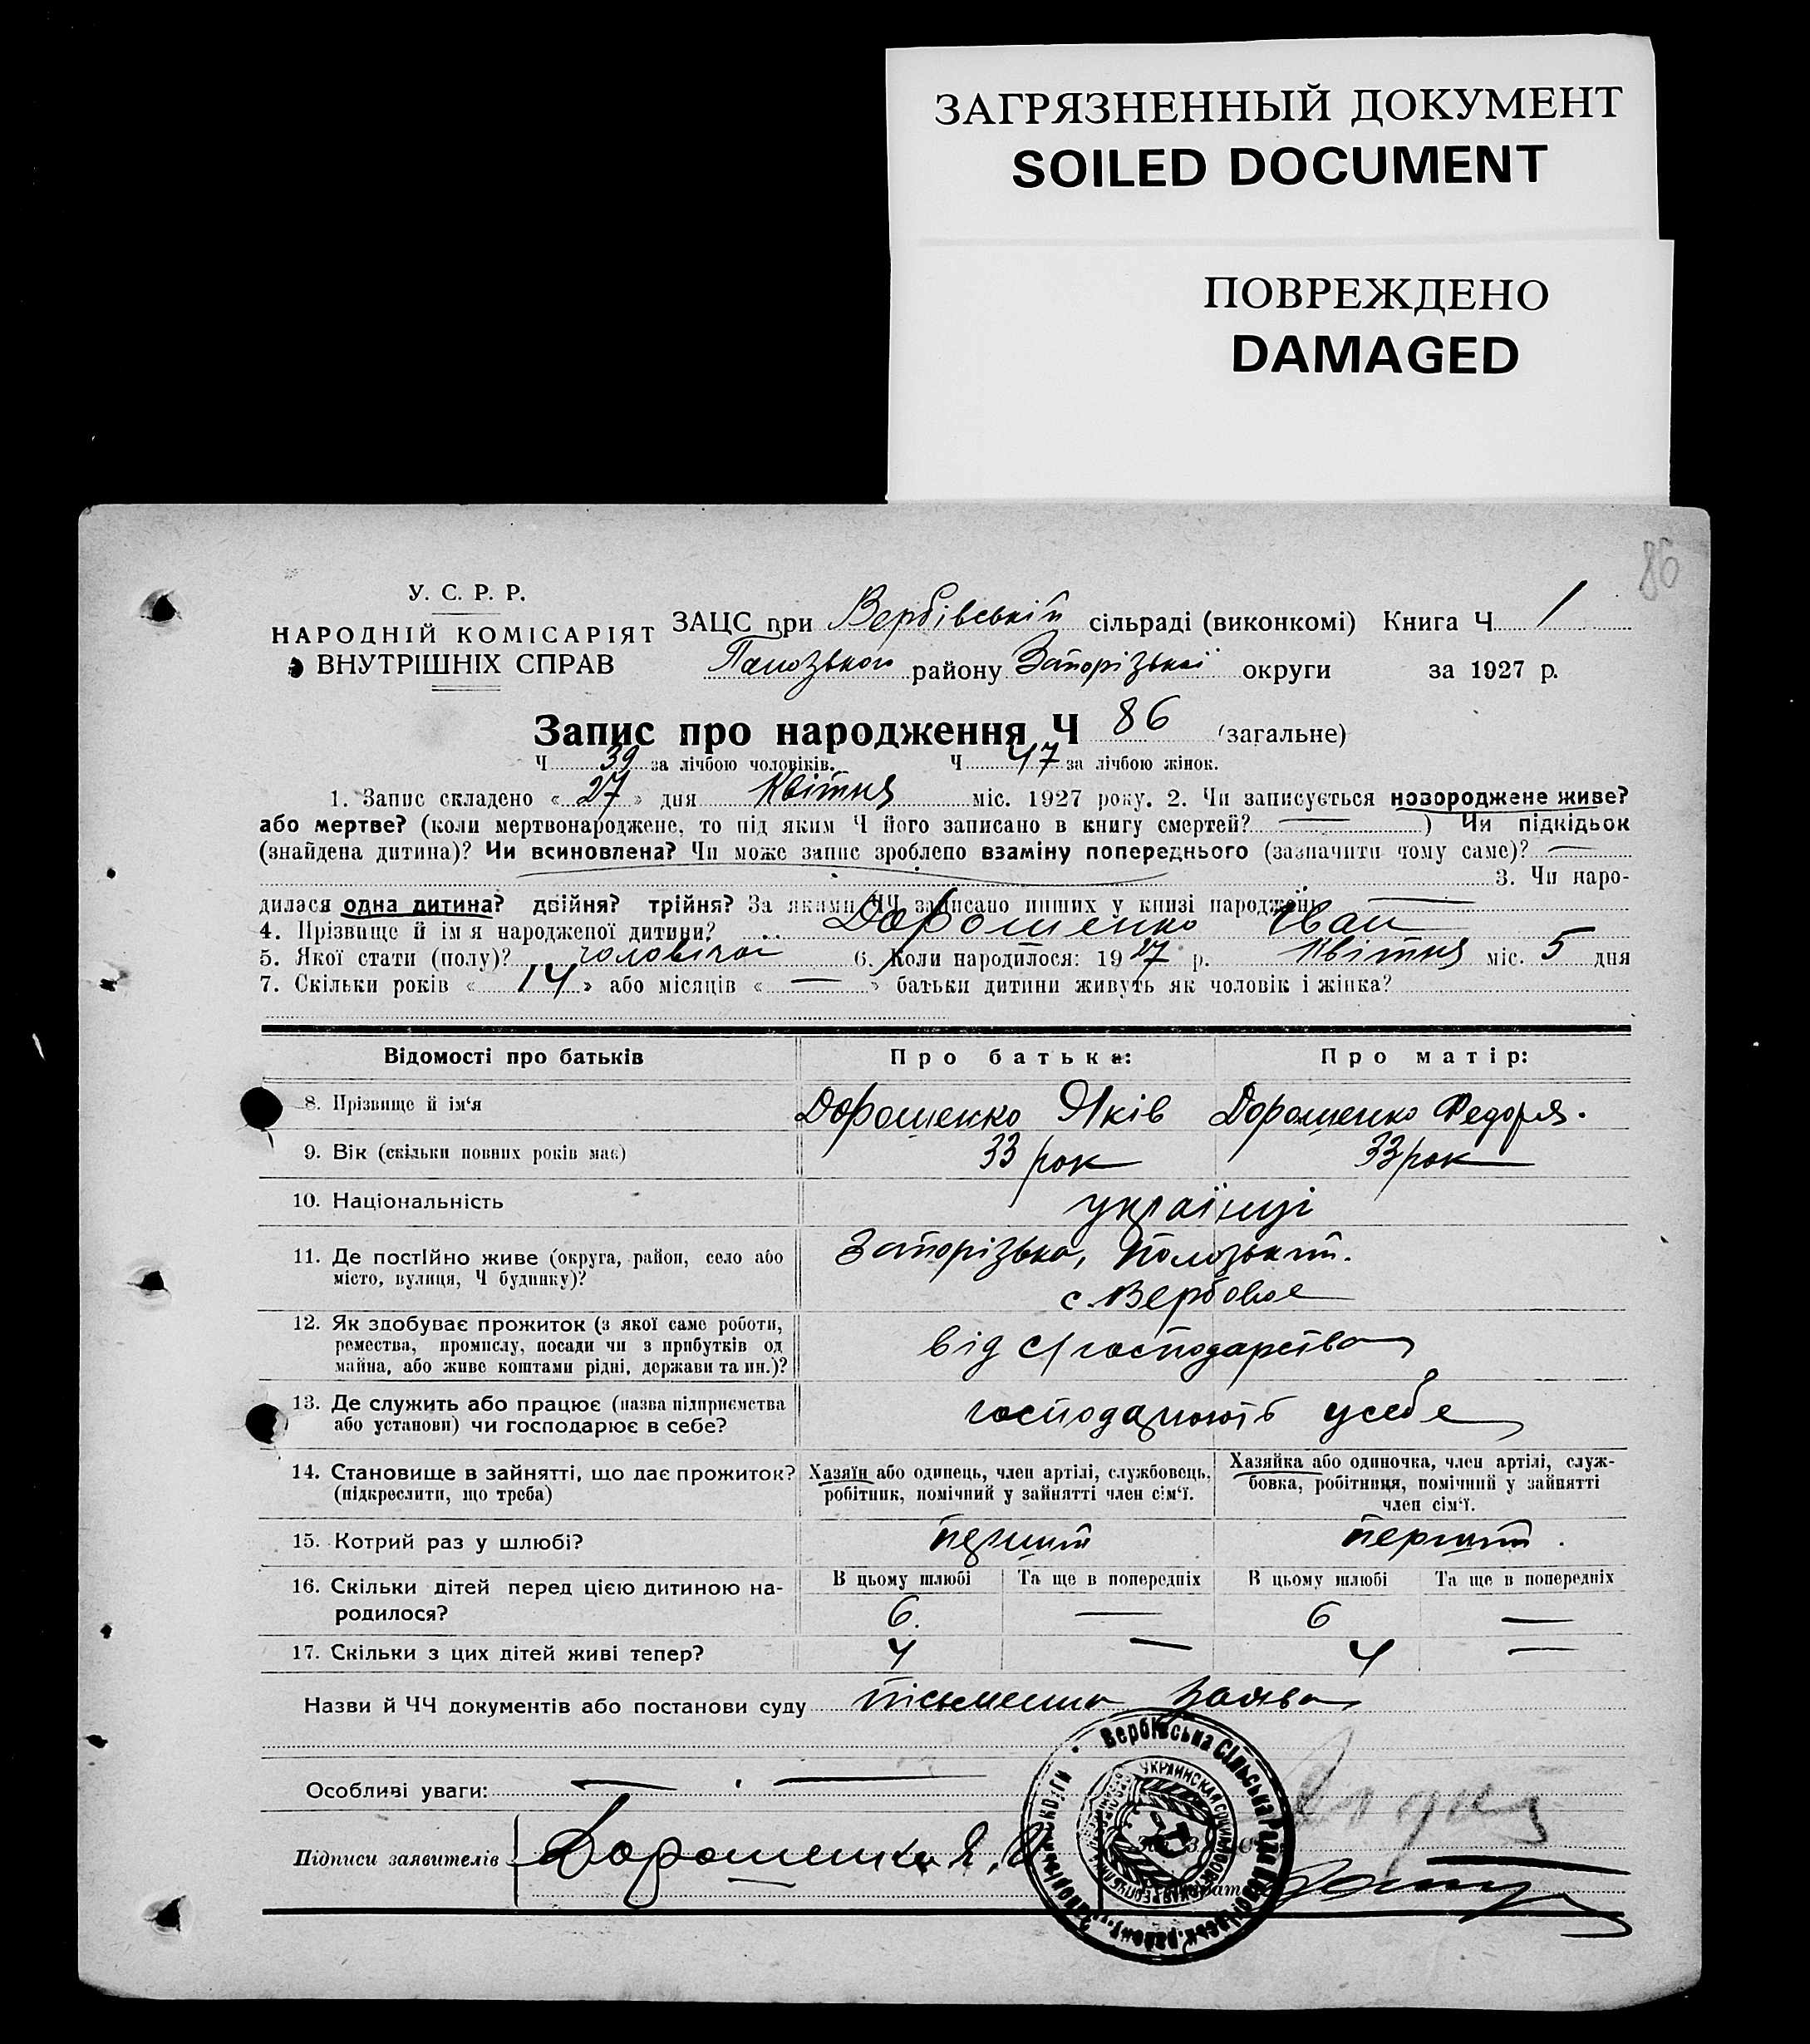 ЗАГРЯЗНЕННЫЙ ДОКУМЕНТ
SOILED DOCUMENT
ПОВРЕЖДЕНО
DAMAGED
86
У. С. Р. Р.
НАРОДНІЙ КОМІСАРІЯТ
ВНУТРІШНІХ СПРАВ
ЗАЦС при Вербівській сільраді (виконкомі) Книга Ч 1
району Запорізької округи за 1927 р.
Запис про народження Ч 86 (загальне)
Ч 39 за лічбою чоловіків. Ч 47 за лічбою жінок.
1. Запис складено « 27 » дня Квітня міс. 1927 року. 2. Чи записується новороджене живе?
або мертве? (коли мертвонароджене, то під яким Ч його записано в книгу смертей? — ) Чи підкідьок
(знайдена дитина)? Чи всиновлена? Чи може запис зроблено взаміну попереднього (зазначити чому саме)? —
3. Чи наро-
дилася одна дитина? двійня? трійня? За якими ЧЧ записано инших у книзі народжень —
4. Прізвище й ім'я народженої дитини? Дорошенко Іван
5. Якої стати (полу)? чоловічої 6. Коли народилося: 1927 р. Квітня міс. 5 дня
7. Скільки років « 14 » або місяців « — » батьки дитини живуть як чоловік і жінка?
Відомості про батьків Про батька: Про матір:
8. Прізвище й ім'я Дорошенко Яків Дорошенко Федора.
9. Вік (скільки повних років має) 33 рок 33 рок
10. Національність українці
11. Де постійно живе (округа, район, село або Запорізька, Пологький.
місто, вулиця, Ч будинку)? с. Вербове
12. Як здобуває прожиток (з якої саме роботи,
ремества, промислу, посади чи з прибутків од від с/господарства
майна, або живе коштами рідні, держави та ин.)?
13. Де служить або працює (назва підприємства господарюють усебе
або установи) чи господарює в себе?
14. Становище в зайнятті, що дає прожиток? Хазяїн або одинець, член артілі, службовець, Хазяйка або одиночка, член артілі, служ-
(підкреслити, що треба) робітник, помічний у зайнятті член сім'ї. бовка, робітниця, помічний у зайнятті
член сім'ї.
15. Котрий раз у шлюбі? перший перший.
16. Скільки дітей перед цією дитиною на- В цьому шлюбі Та ще в попередніх В цьому шлюбі Та ще в попередніх
родилося? 6. — 6 —
17. Скільки з цих дітей живі тепер? 4 — 4 —
Назви й ЧЧ документів або постанови суду письменна заява
Особливі уваги: —
Підписи заявителів Дорошенко Я.
Вербівська Сільська Рада
УКРАИНСКАЯ